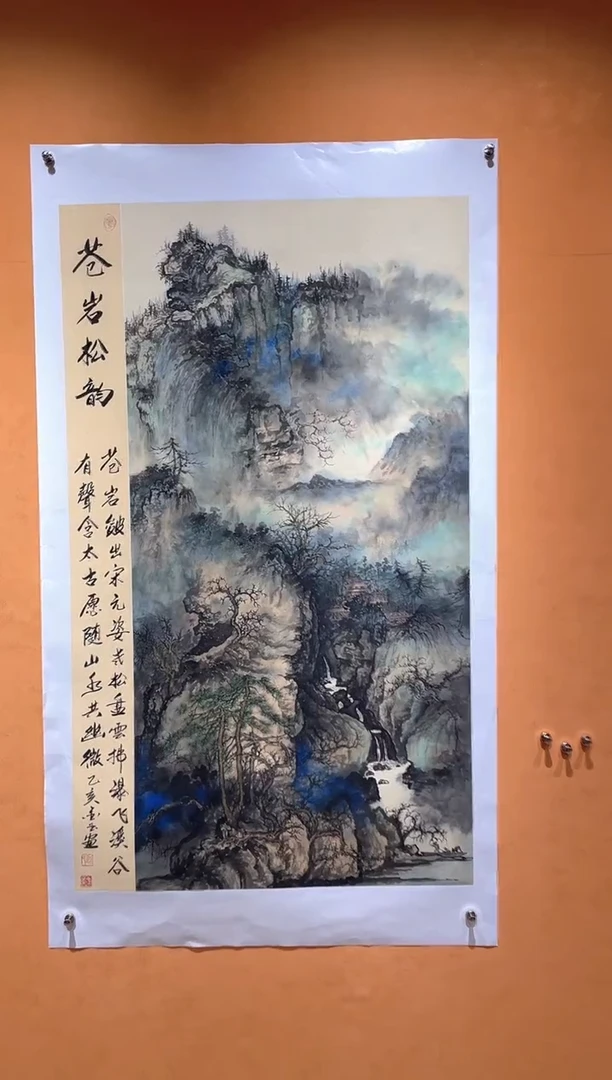 苍岩松韵
苍岩皴出宋元姿老松垂雲拂瀑飞溪谷
有聲含太古愿随山水共幽微乙亥